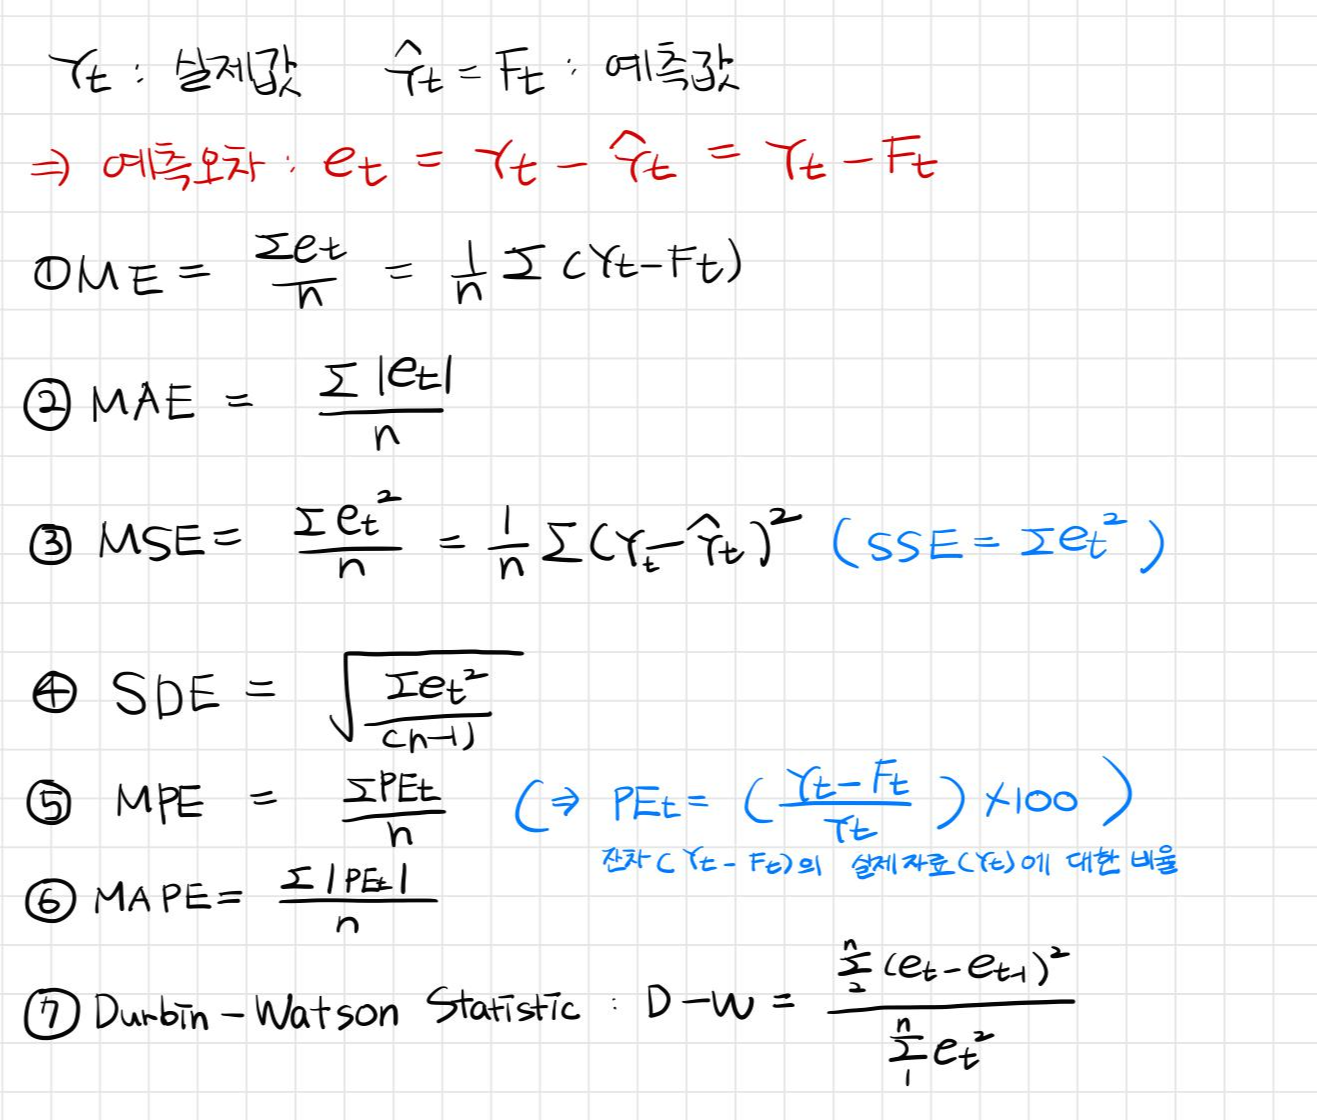 Yt : 실제값 Ŷt = Ft : 예측값
⇒ 예측오차 : et = Yt − Ŷt = Yt − Ft
① ME = Σet/n = 1/n Σ (Yt−Ft)
② MAE = Σ|et|/n
③ MSE = Σet²/n = 1/n Σ(Yt−Ŷt)² (SSE = Σet²)
④ SDE = √(Σet²/(n−1))
⑤ MPE = ΣPEt/n (⇒ PEt = (Yt−Ft/Yt) ×100)
잔차(Yt − Ft)의 실제자료(Yt)에 대한 비율
⑥ MAPE = Σ|PEt|/n
⑦ Durbin−Watson Statistic : D−W = Σ₂ⁿ(et−et−1)² / Σ₁ⁿ et²